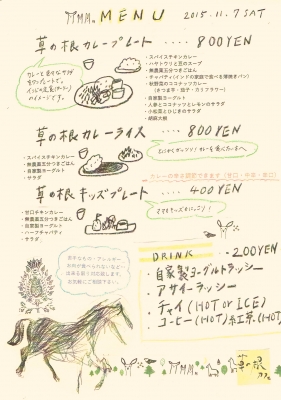 MENU 2015.11.7 SAT
草の根カレープレート ････ 800YEN
カレーと色々なサラダ
をワンプレートで。
インドの定食(ミールス)
イメージです。
・スパイスチキンカレー
・ハヤトウリと豆のスープ
・無農薬五分つきごはん
・チャパティ(インドの家庭で食べる薄焼きパン)
・秋野菜のココナッツカレー
(さつま芋・茄子・カリフラワー)
・自家製ヨーグルト
・人参とココナッツとレモンのサラダ
・小松菜とひじきのサラダ
・胡麻大根
草の根カレーライス ････ 800YEN
・スパイスチキンカレー
・無農薬五分つきごはん
・自家製ヨーグルト
・サラダ
カレーの辛さ調節できます(甘口・中辛・辛口)
草の根キッズプレート ････ 400YEN
・甘口チキンカレー
・無農薬五分つきごはん
・自家製ヨーグルト
・ハーフチャパティ
・サラダ
ママもキッズもにっこり!
DRINK ‥‥200YEN
・自家製ヨーグルトラッシー
・アサイーラッシー
・チャイ(HOT or ICE)
・コーヒー(HOT)紅茶(HOT)
草の根
カフェ